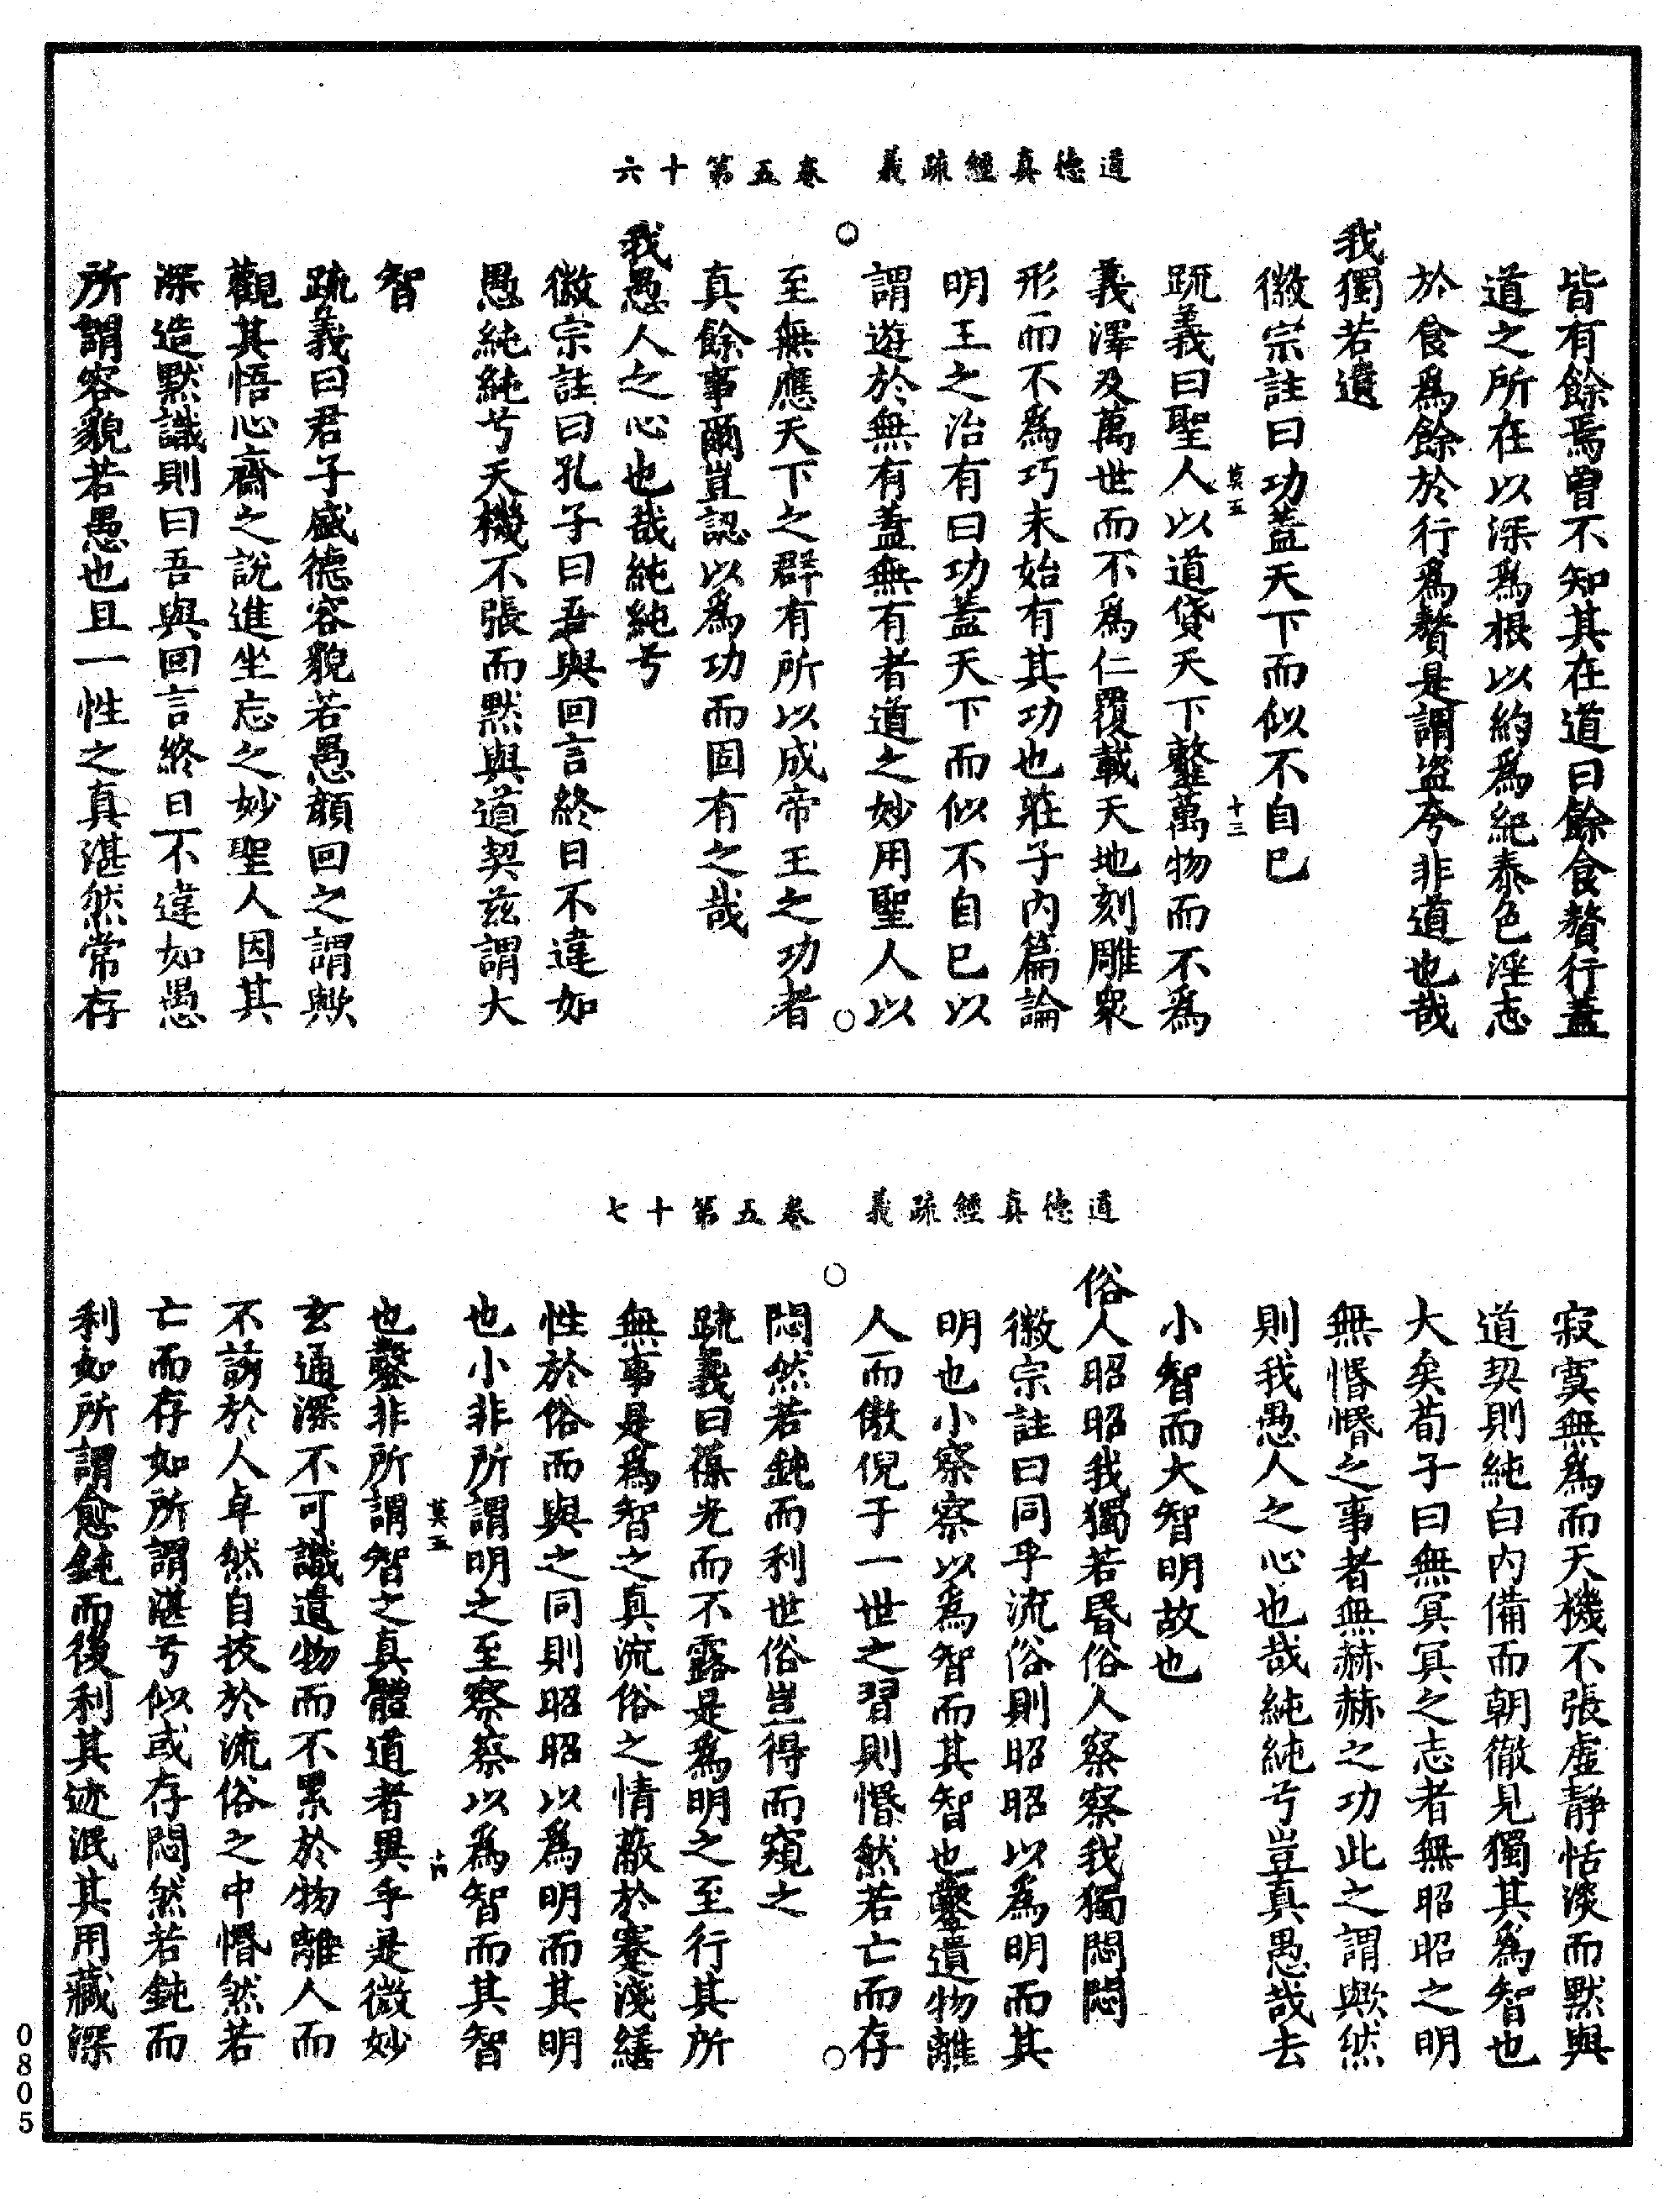 道德真經疏義　卷五第十六
皆有餘焉曾不知其在道曰餘食贅行蓋
道之所在以深爲根以約爲紀泰色淫志
於食爲餘於行爲贅是謂盜夸非道也哉
我獨若遺
徽宗註曰功蓋天下而似不自已
莫五　十三
疏義曰聖人以道貸天下䪠萬物而不爲
義澤及萬世而不爲仁覆載天地刻雕衆
形而不爲巧未始有其功也莊子內篇論
明王之治有曰功蓋天下而似不自已以
謂遊於無有蓋無有者道之妙用聖人以
至無應天下之群有所以成帝王之功者
真餘事爾豈認以爲功而固有之哉
我愚人之心也哉純純兮
徽宗註曰孔子曰吾與回言終日不違如
愚純純兮天機不張而默與道契茲謂大
智
疏義曰君子盛德容貌若愚顏回之謂歟
觀其悟心齋之說進坐忘之妙聖人因其
深造默識則曰吾與回言終日不違如愚
所謂容貌若愚也且一性之真湛然常存
道德真經疏義　卷五第十七
寂寞無爲而天機不張虛靜恬淡而默與
道契則純白內備而朝徹見獨其爲智也
大矣荀子曰無冥冥之志者無昭昭之明
無惛惛之事者無赫赫之功此之謂歟然
則我愚人之心也哉純純兮豈真愚哉去
小智而大智明故也
俗人昭昭我獨若昏俗人察察我獨悶悶
徽宗註曰同乎流俗則昭昭以爲明而其
明也小察察以爲智而其智也鑿遺物離
人而傲倪于一世之習則惛然若亡而存
悶然若鈍而利世俗豈得而窺之
疏義曰葆光而不露是爲明之至行其所
無事是爲智之真流俗之情蔽於蹇淺繕
性於俗而與之同則昭昭以爲明而其明
也小非所謂明之至察察以爲智而其智
莫五　十四
也鑿非所謂智之真體道者異乎是微妙
玄通深不可識遺物而不累於物離人而
不謭於人卓然自拔於流俗之中惛然若
亡而存如所謂湛兮似或存悶然若鈍而
利如所謂愈鈍而後利其迹泯其用藏深
0805